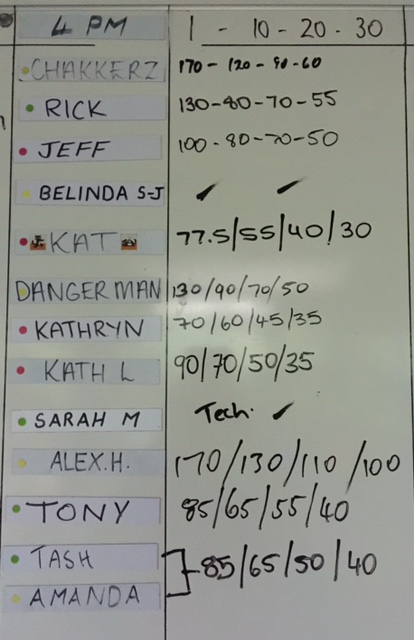 4 PM 1 - 10 - 20 - 30
CHAKKERZ 170 - 120 - 90 - 60
RICK 130-80-70-55
JEFF 100-80-70-50
BELINDA S-J ✓ ✓
KAT 77.5/55/40/30
DANGERMAN 130/90/70/50
KATHRYN 70/60/45/35
KATH L 90/70/50/35
SARAH M Tech. ✓
ALEX.H. 170/130/110/100
TONY 85/65/55/40
TASH 85/65/50/40
AMANDA